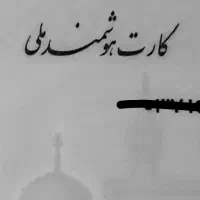 کارت هوشمند ملی